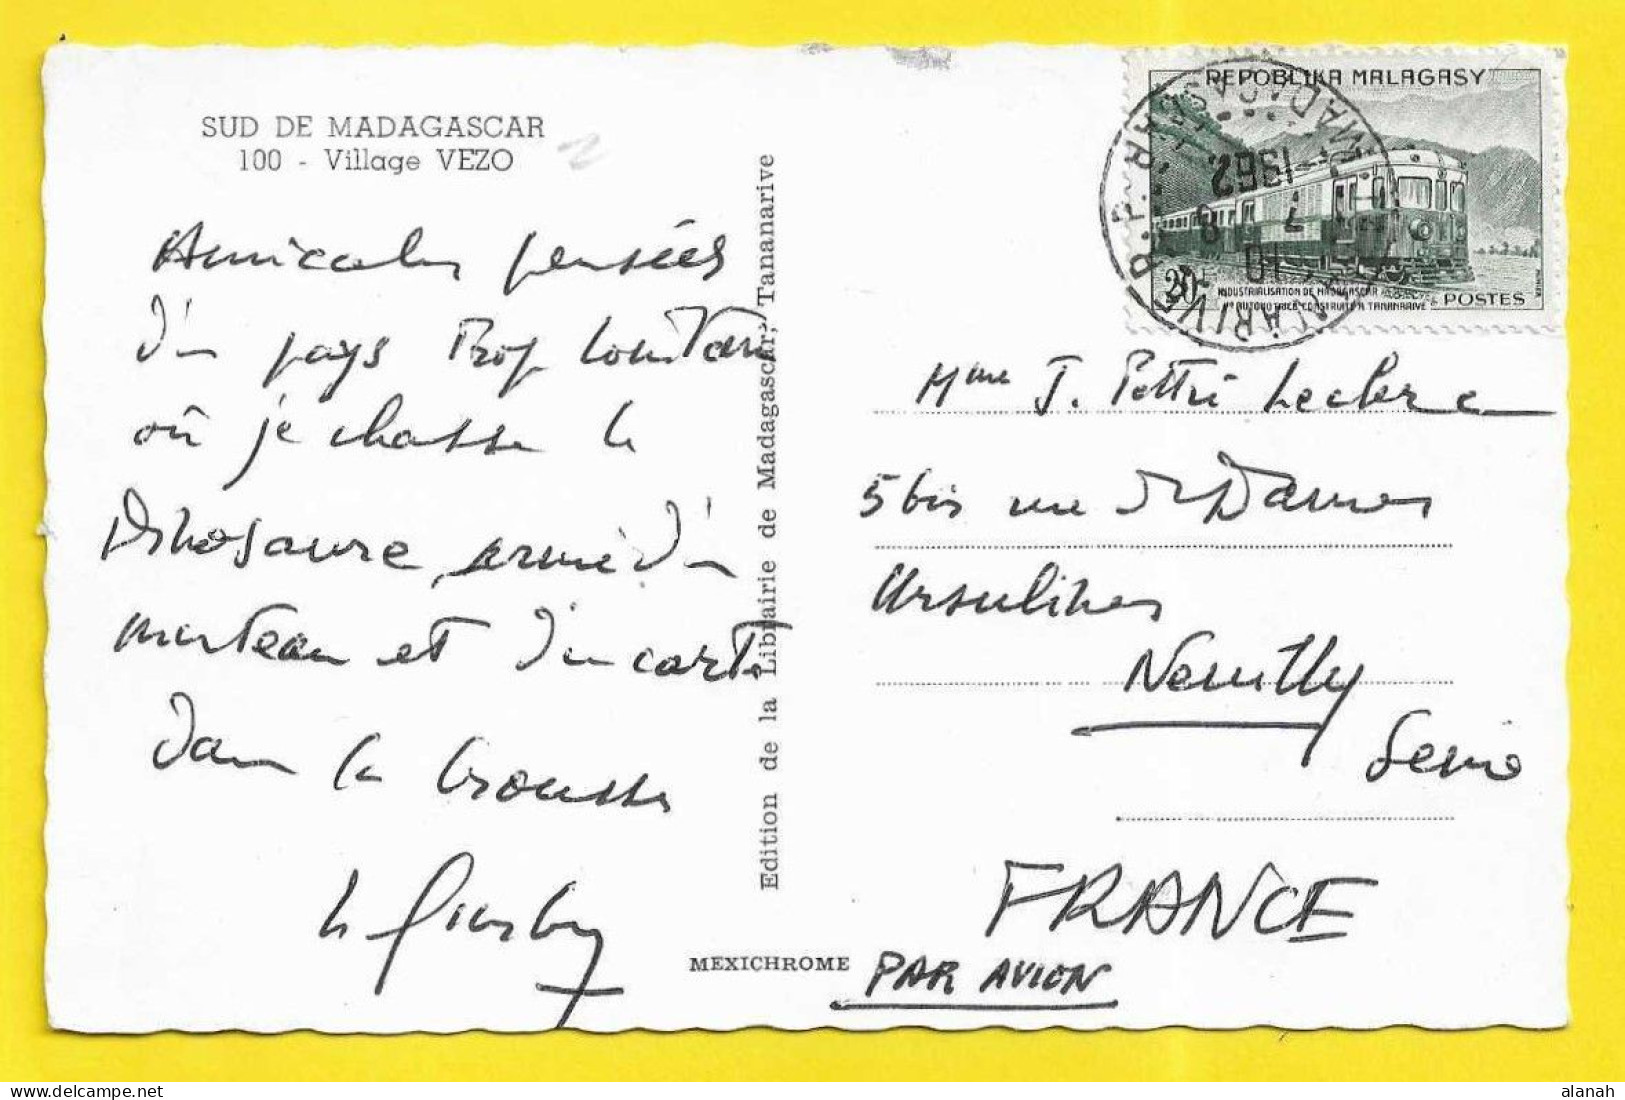 SUD DE MADAGASCAR
100 - Village VEZO
Amicales pensées
d'un pays trop lointain
où je chasse le
Dinosaure, armé d'un
marteau et d'un carte
dans la brousse
Edition de la Librairie de Madagascar, Tananarive
MEXICHROME
REPOBLIKA MALAGASY
20F
INDUSTRIALISATION DE MADAGASCAR
UN AUTOMOTRICE CONSTRUITE A TANANARIVE
POSTES
TANANARIVE R.P.
MADAGASCAR
10 H
7 - 9
1962
Mme J. Pottié Leclerc
5 bis rue des Dames
Ursulines
Neuilly
Seine
FRANCE
PAR AVION
alanah